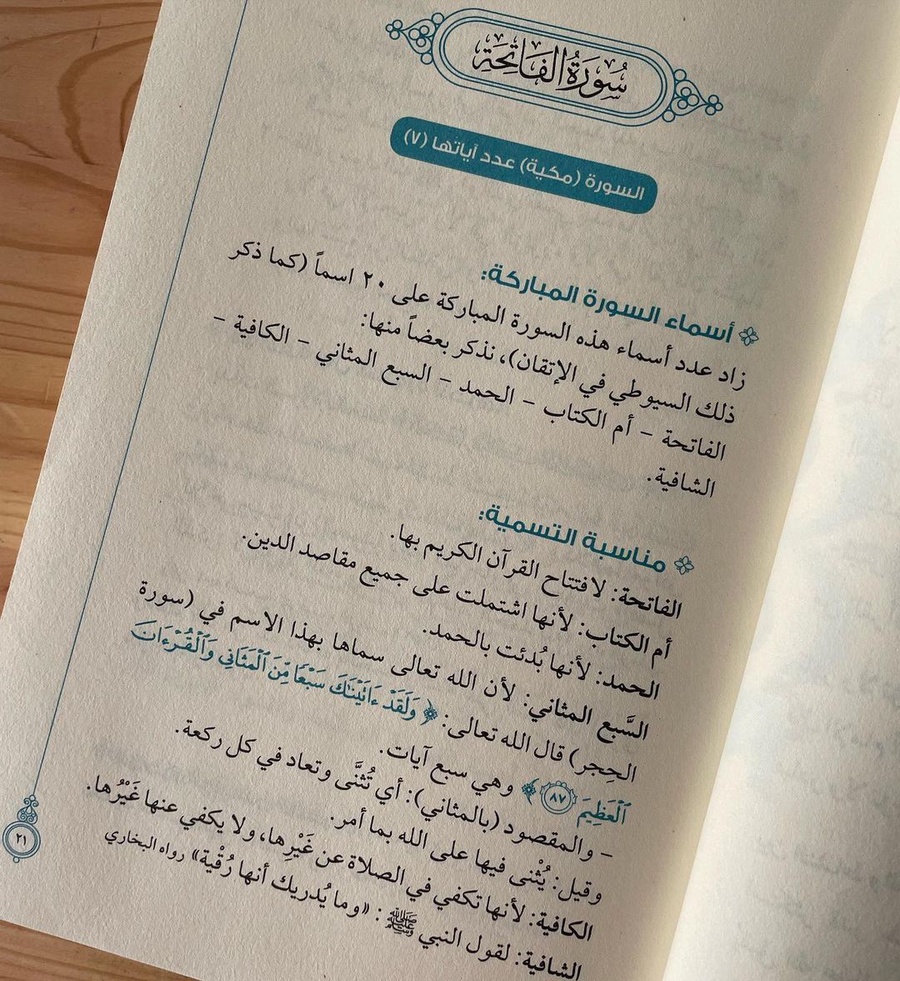 سُورَةُ الفَاتِحَة
السورة (مكية) عدد آياتها (٧)
أسماء السورة المباركة:
زاد عدد أسماء هذه السورة المباركة على ٢٠ اسماً (كما ذكر
ذلك السيوطي في الإتقان)، نذكر بعضاً منها:
الفاتحة – أم الكتاب – الحمد – السبع المثاني – الكافية –
الشافية.
مناسبة التسمية:
الفاتحة: لافتتاح القرآن الكريم بها.
أم الكتاب: لأنها اشتملت على جميع مقاصد الدين.
الحمد: لأنها بُدئت بالحمد.
السَّبع المثاني: لأن الله تعالى سماها بهذا الاسم في (سورة
الحِجر) قال الله تعالى: ﴿ وَلَقَدْ ءَاتَيْنَٰكَ سَبْعًا مِّنَ ٱلْمَثَانِي وَٱلْقُرْءَانَ
ٱلْعَظِيمَ ٨٧ ﴾ وهي سبع آيات.
– والمقصود (بالمثاني): أي تُثنَّى وتعاد في كل ركعة.
وقيل: يُثْنى فيها على الله بما أمر.
الكافية: لأنها تكفي في الصلاة عن غَيْرِها، ولا يكفي عنها غَيْرُها.
الشافية: لقول النبي ﷺ: «وما يُدريك أنها رُقْية» رواه البخاري
٢١